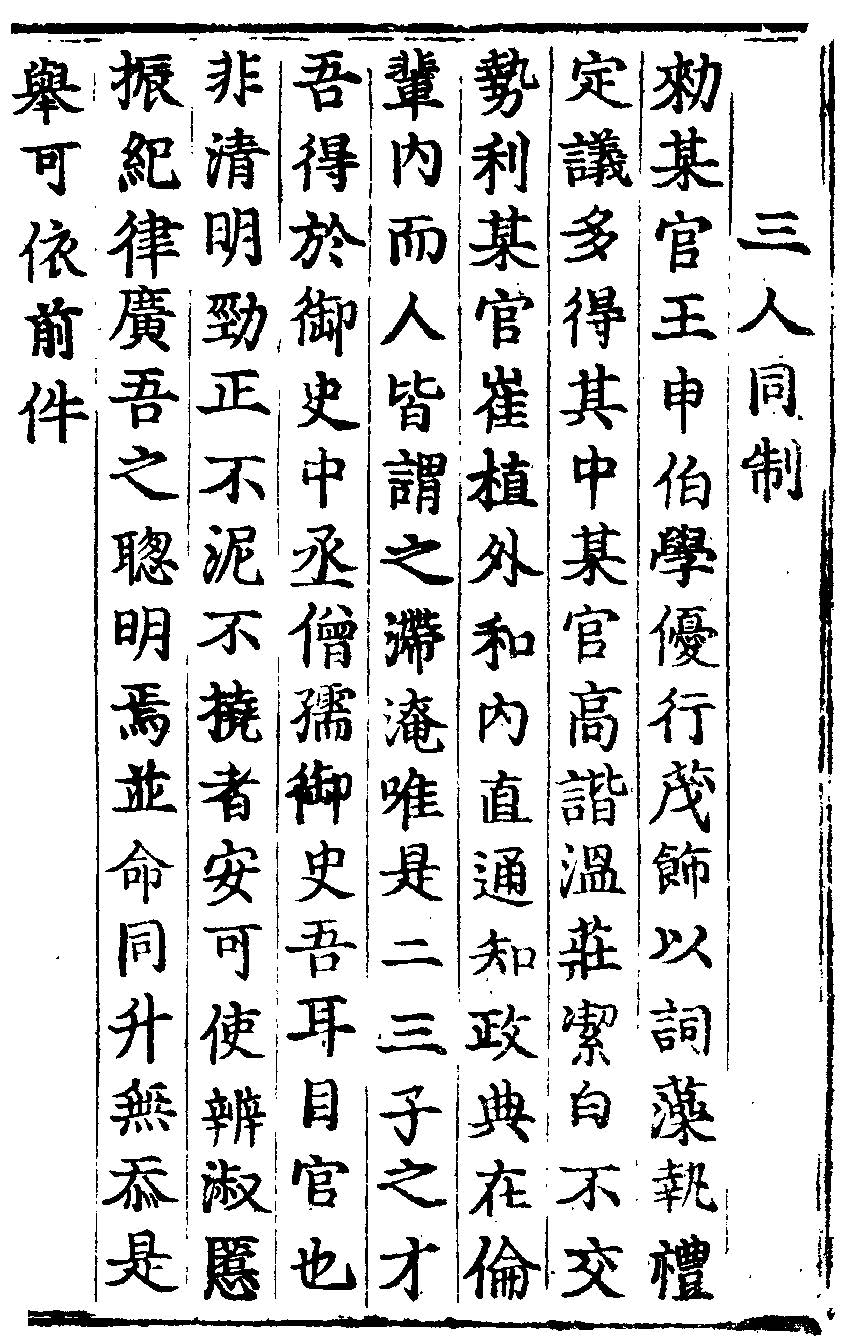 三人同制
勑某官王申伯學優行茂飾以詞藻執禮
定議多得其中某官高諧溫莊潔白不交
勢利某官崔植外和内直通知政典在倫
輩内而人皆謂之滯淹唯是二三子之才
吾得於御史中丞僧孺御史吾耳目官也
非清明勁正不泥不撓者安可使辨淑慝
振紀律廣吾之聰明焉並命同升無忝是
舉可依前件